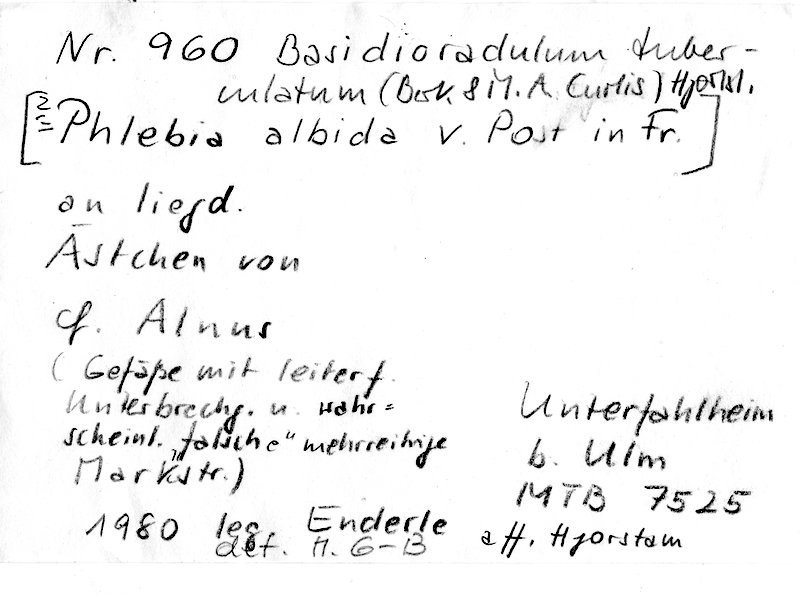 Nr. 960 Basidioradulum tuber-
culatum (Berk. & M. A. Curtis) Hjortst.
[ Phlebia albida v. Post in Fr. ]
an liegd.
Ästchen von
cf. Alnus
(Gefäße mit leiterf.
Unterbrechg. u. wahr=
scheinl. "falsche" mehrreihige
Markstr.)
Unterfahlheim
b. Ulm
MTB 7525
1980 leg. Enderle
det. H. G-B
aff. Hjorstam